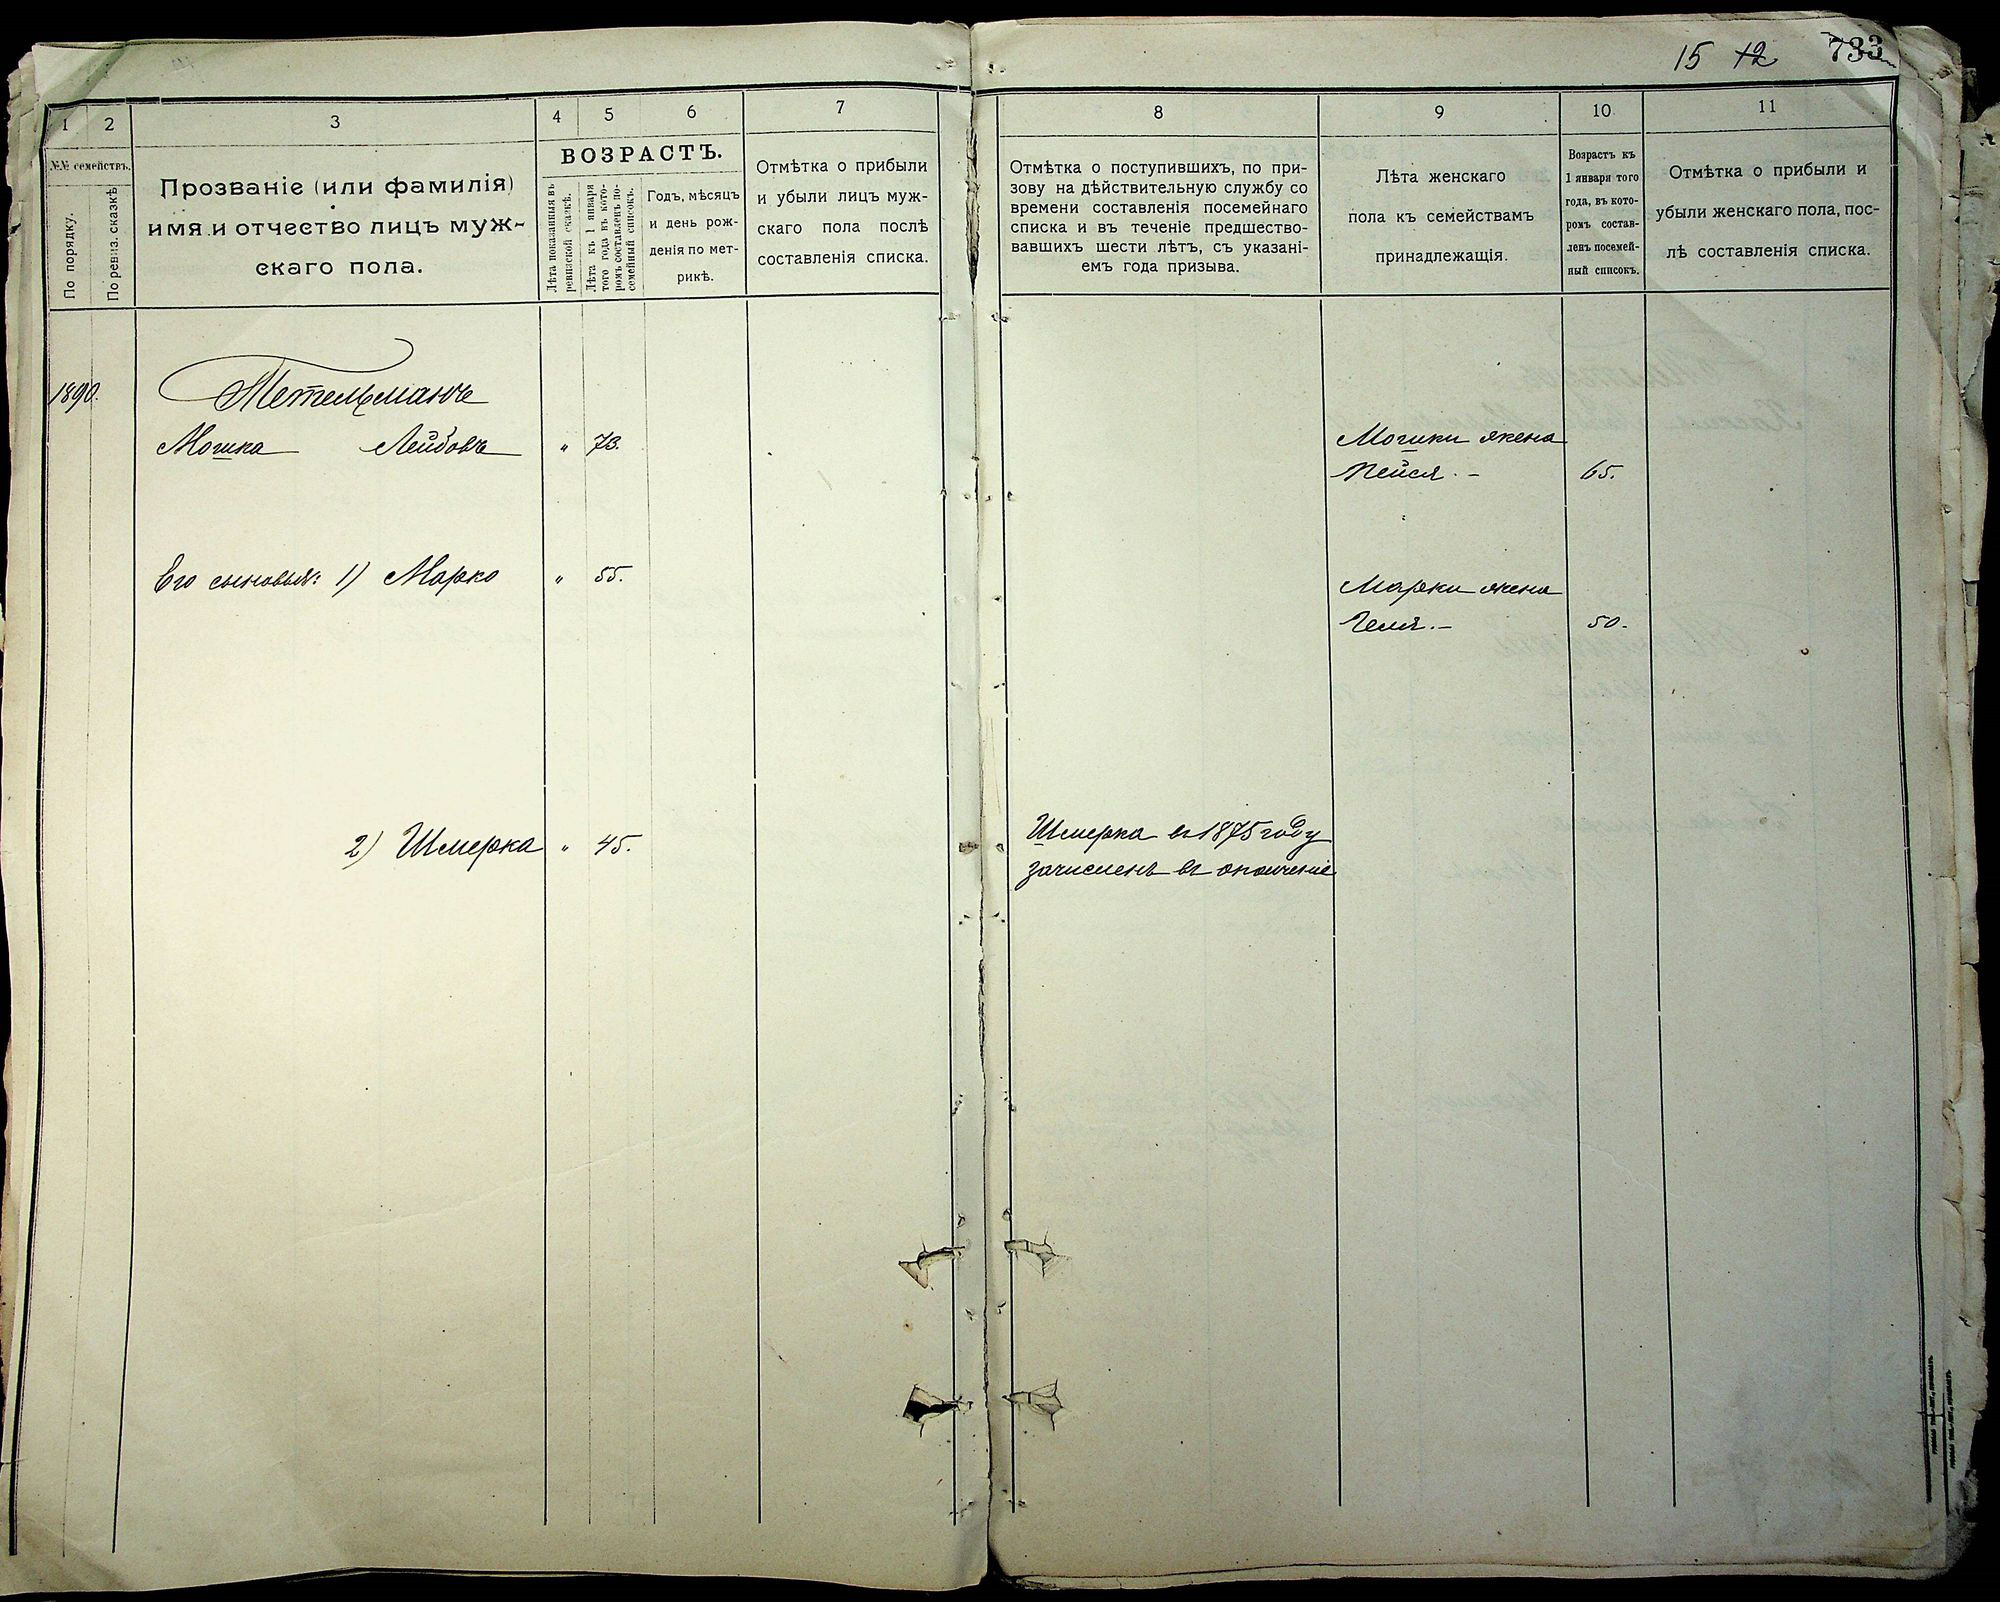 15 12 733
1 2 3 4 5 6 7
№№ семействъ.
По порядку.
По ревиз. сказкѣ
Прозваніе (или фамилія)
имя и отчество лицъ муж-
скаго пола.
ВОЗРАСТЪ.
Лѣта показанныя въ
ревизской сказкѣ.
Лѣта къ 1 января
того года въ кото-
ромъ составленъ по-
семейный списокъ.
Годъ, мѣсяцъ
и день рож-
денія по мет-
рикѣ.
Отмѣтка о прибыли
и убыли лицъ муж-
скаго пола послѣ
составленія списка.
8 9 10 11
Отмѣтка о поступившихъ, по при-
зову на дѣйствительную службу со
времени составленія посемейнаго
списка и въ теченіе предшество-
вавшихъ шести лѣтъ, съ указані-
емъ года призыва.
Лѣта женскаго
пола къ семействамъ
принадлежащія.
Возрастъ къ
1 января того
года, въ кото-
ромъ состав-
ленъ посемей-
ный списокъ.
Отмѣтка о прибыли и
убыли женскаго пола, пос-
лѣ составленія списка.
1890. Тетельманъ
Мошка Лейбовъ " 73.
Мошки жена
Пейся. - 65.
Его сыновья: 1) Марко " 55.
Марки жена
Геля. - 50.
2) Шмерка " 45.
Шмерка въ 1875 году
зачисленъ въ ополченіе